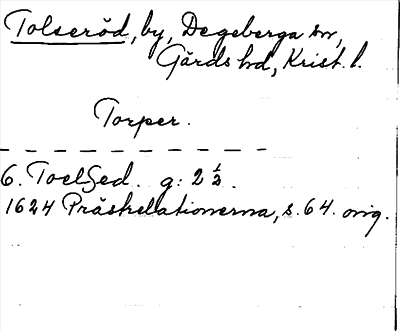 Tolseröd, by, Degeberga sn,
Gärds hd, Krist. l.
Torper.
6. Toelßed. g: 2 ½.
1624 Präskrelationerna, s. 64. orig.